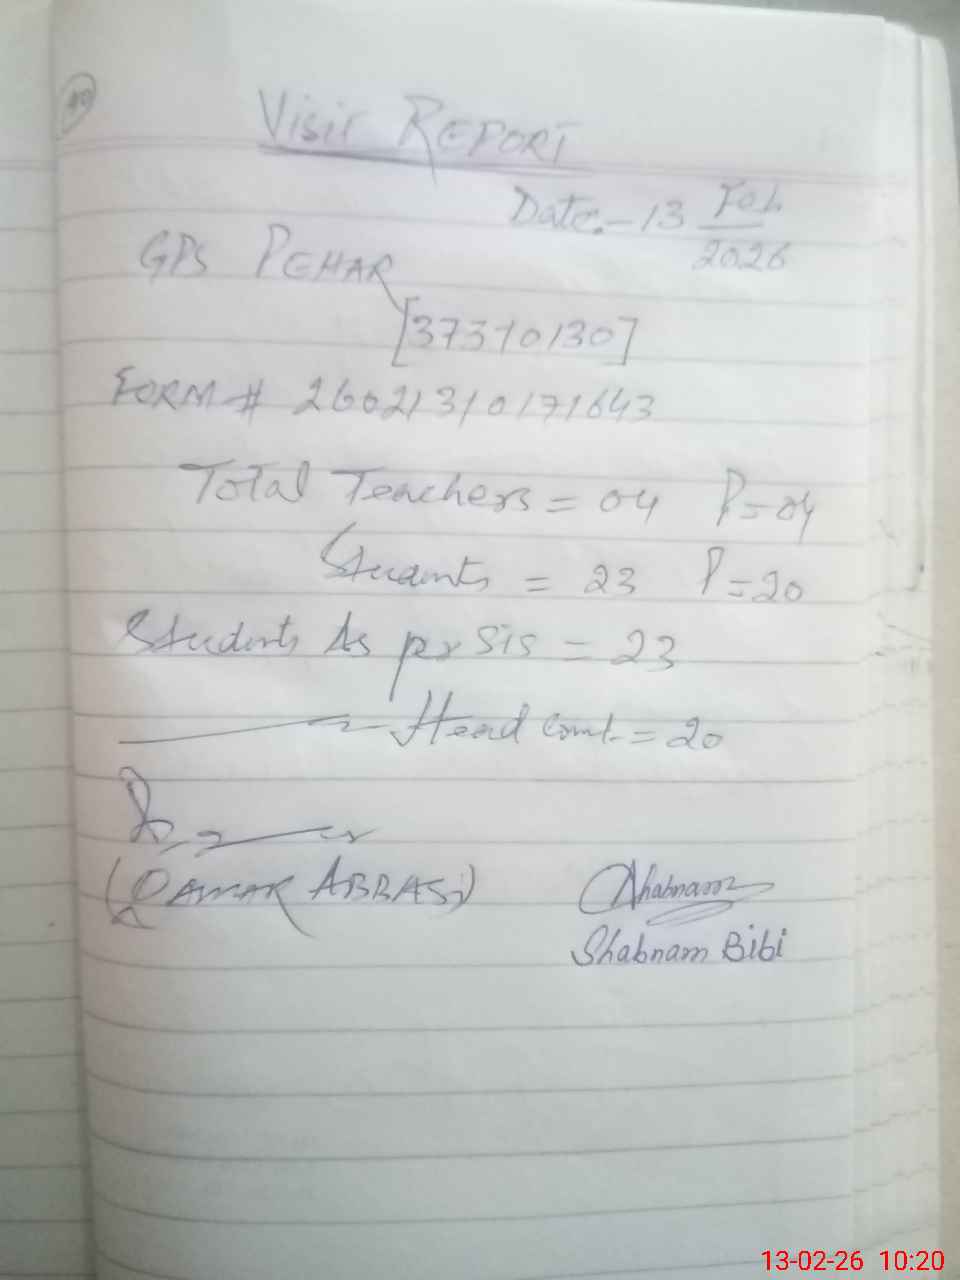 40
Visit REPORT
Date:- 13 Feb. 2026
GPS PEHAR
[37310130]
FORM # 26021310171643
Total Teachers = 04 P=04
Students = 23 P=20
Students As per SIS = 23
Head count = 20
(QAMAR ABBASI)
Shabnam
Shabnam Bibi
13-02-26 10:20